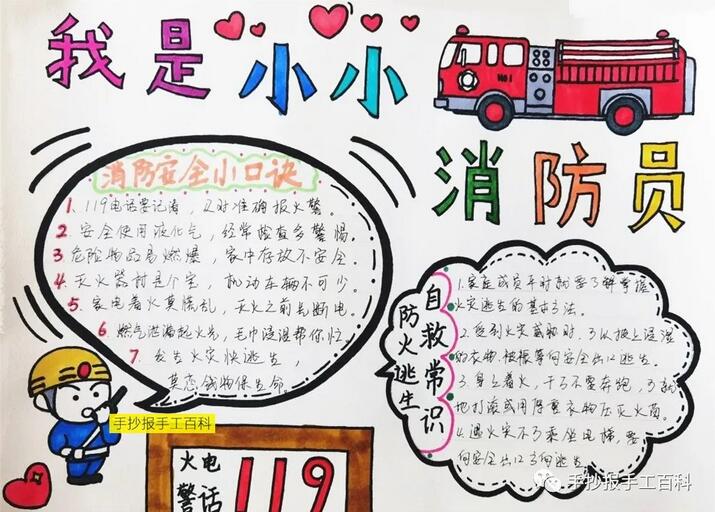 我是小小
消防员
消防安全小口诀
1、119电话要记清，及时准确报火警。
2、安全使用液化气，经常检查多警惕。
3、危险物品易燃爆，家中存放不安全。
4、灭火器材是个宝，机动车辆不可少。
5、家电着火莫慌乱，灭火之前先断电。
6、燃气泄漏起火苗，毛巾浸湿帮你忙。
7、发生火灾快逃生，
莫恋钱物保生命
防火逃生
自救常识
1.家庭成员平时就要了解掌握
火灾逃生的基本方法。
2.受到火灾威胁时，可以披上浸湿
的衣物、被褥等向安全出口逃生。
3.身上着火，千万不要奔跑，可就
地打滚或用厚重衣物压灭火苗。
4.遇火灾不可乘坐电梯，要
向安全出口方向逃生。
火电
警话
119
手抄报手工百科
手抄报手工百科